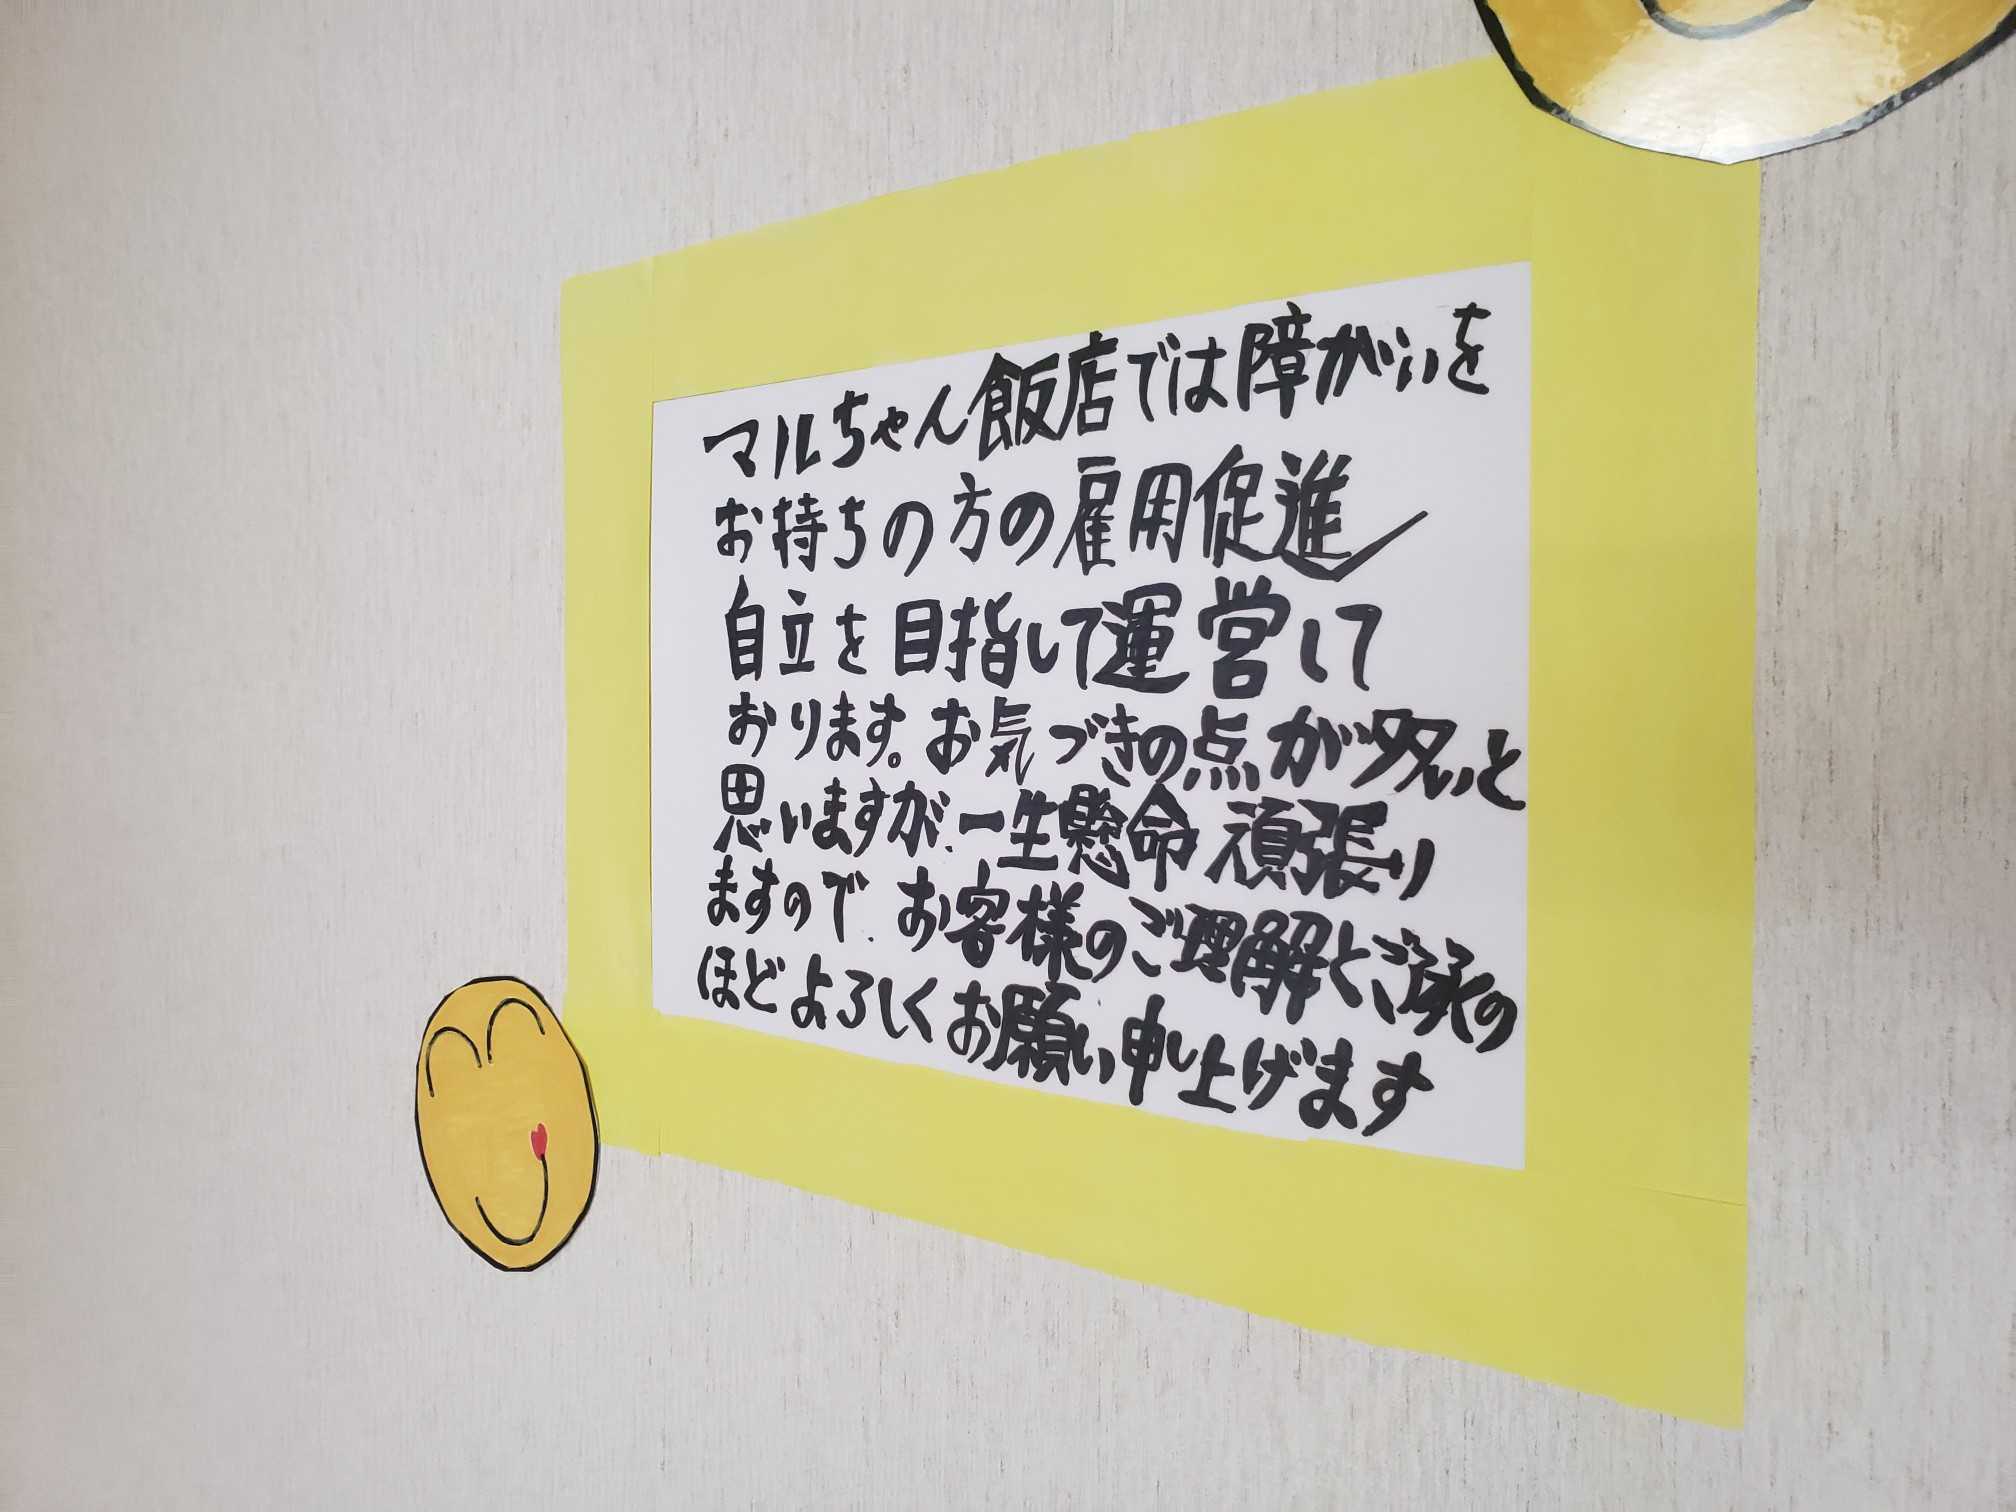 マルちゃん飯店では障がいを
お持ちの方の雇用促進
自立を目指して運営して
おります。お気づきの点が多いと
思いますが、一生懸命頑張り
ますので、お客様のご理解とご承の
ほどよろしくお願い申し上げます